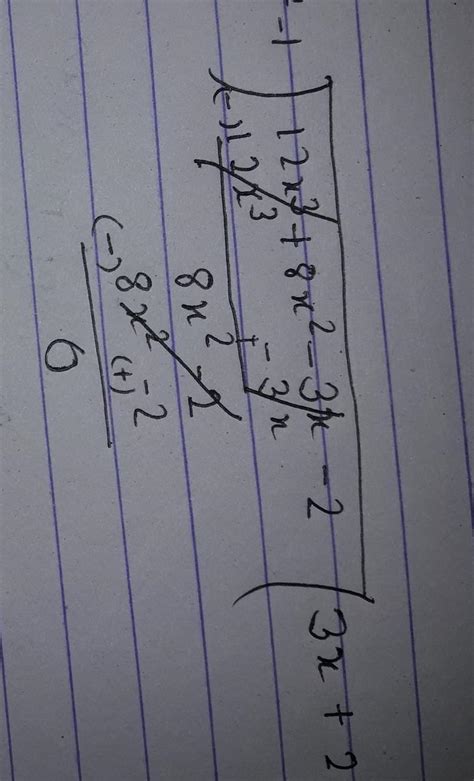 -1 ) 12x³ + 8x² - 3x - 2 ( 3x + 2
(-) 12x³ - 3x
+
8x² - 2
8x² - 2
(-) (+)
0